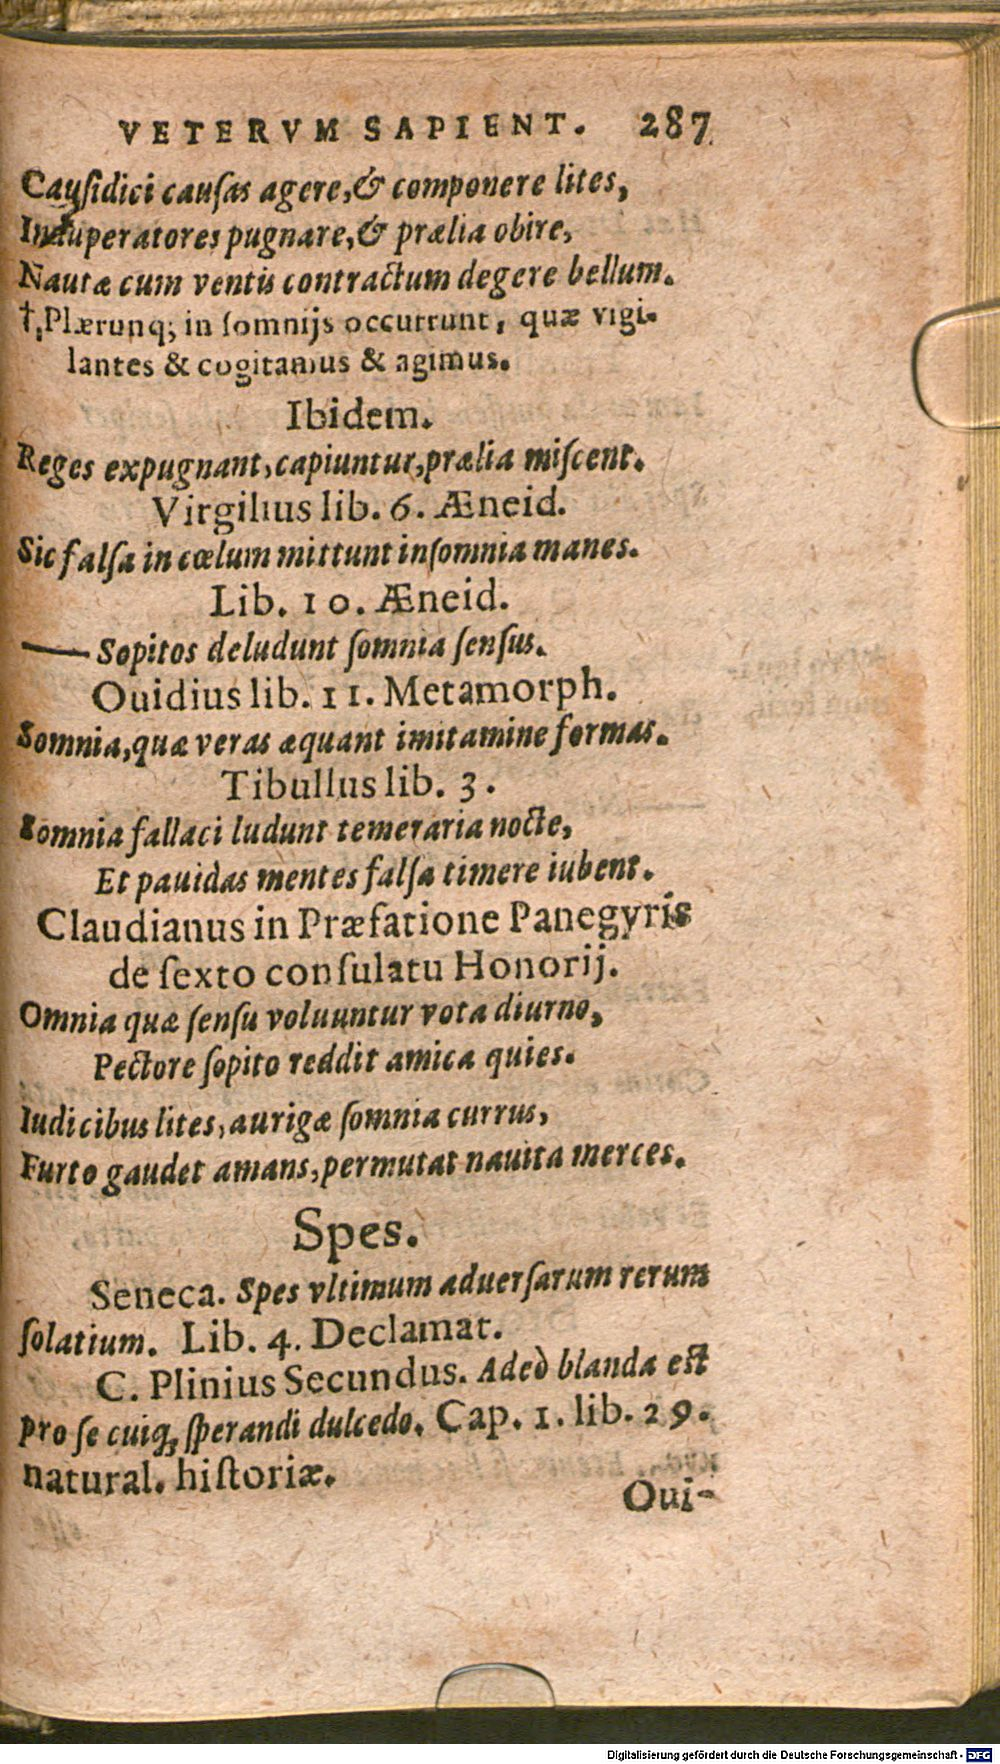 VETERVM SAPIENT. 287
Cauſidici cauſas agere, & componere lites,
Induperatores pugnare, & prælia obire,
Nautæ cum ventis contractum degere bellum.
†, Plærunq; in ſomnijs occurrunt, quæ vigi-
lantes & cogitamus & agimus.
Ibidem.
Reges expugnant, capiuntur, prælia miſcent.
Virgilius lib. 6. Æneid.
Sic falſa in cœlum mittunt inſomnia manes.
Lib. 10. Æneid.
— Sopitos deludunt ſomnia ſenſus.
Ouidius lib. 11. Metamorph.
Somnia, quæ veras æquant imitamine formas.
Tibullus lib. 3.
Somnia fallaci ludunt temeraria nocte,
Et pauidas mentes falſa timere iubent.
Claudianus in Præfatione Panegyris
de ſexto conſulatu Honorij.
Omnia quæ ſenſu voluuntur vota diurno,
Pectore ſopito reddit amica quies.
Iudicibus lites, aurigæ ſomnia currus,
Furto gaudet amans, permutat nauita merces.
Spes.
Seneca. Spes vltimum aduerſarum rerum
ſolatium. Lib. 4. Declamat.
C. Plinius Secundus. Adeò blanda eſt
pro ſe cuiq; ſperandi dulcedo. Cap. 1. lib. 29.
natural. hiſtoriæ.
Oui-
Digitalisierung gefördert durch die Deutsche Forschungsgemeinschaft - DFG